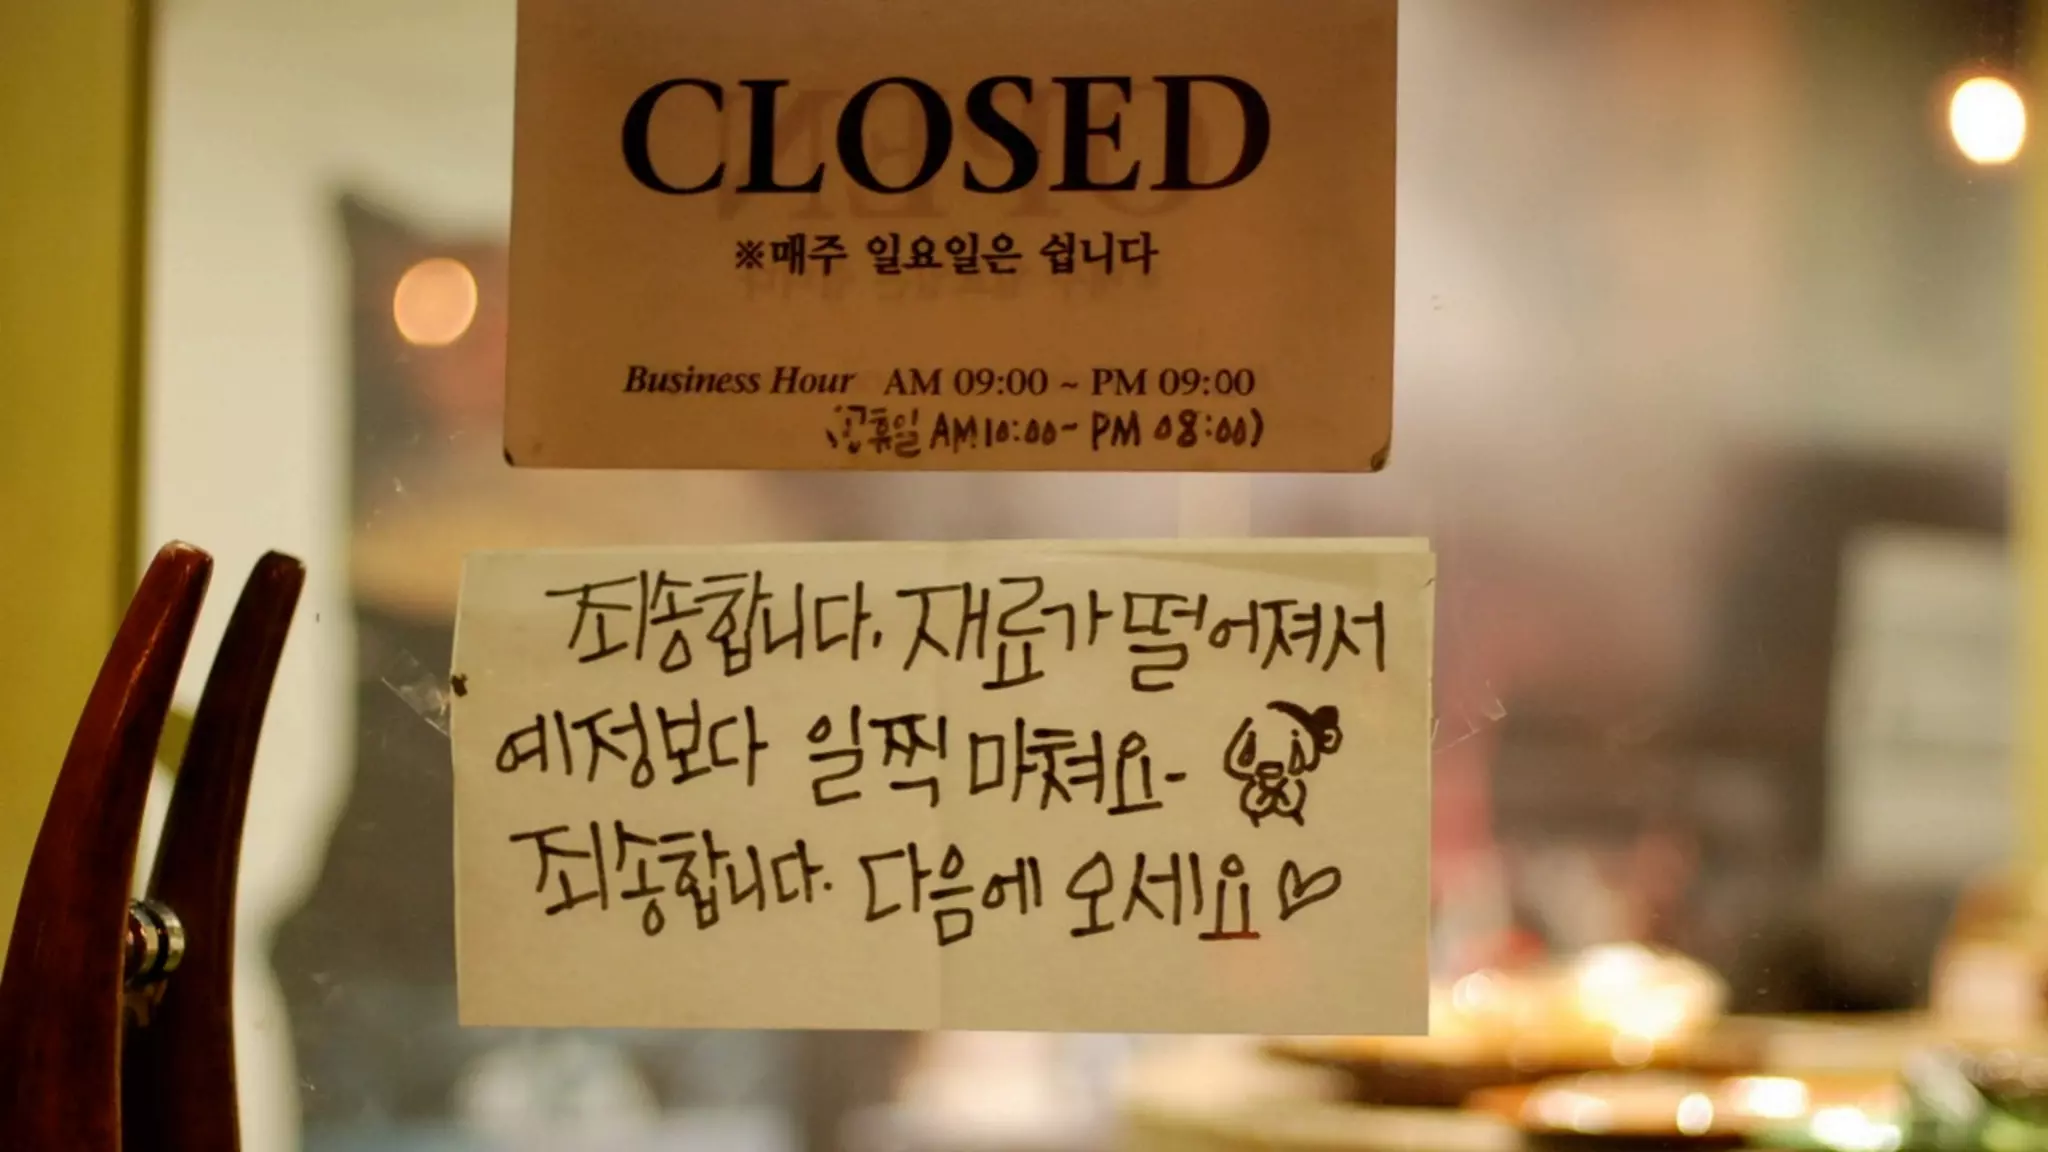 CLOSED
※매주 일요일은 쉽니다
Business Hour AM 09:00 ~ PM 09:00
(공휴일 AM10:00~ PM 08:00)
죄송합니다. 재료가 떨어져서
예정보다 일찍 마쳐요-
죄송합니다. 다음에 오세요♡